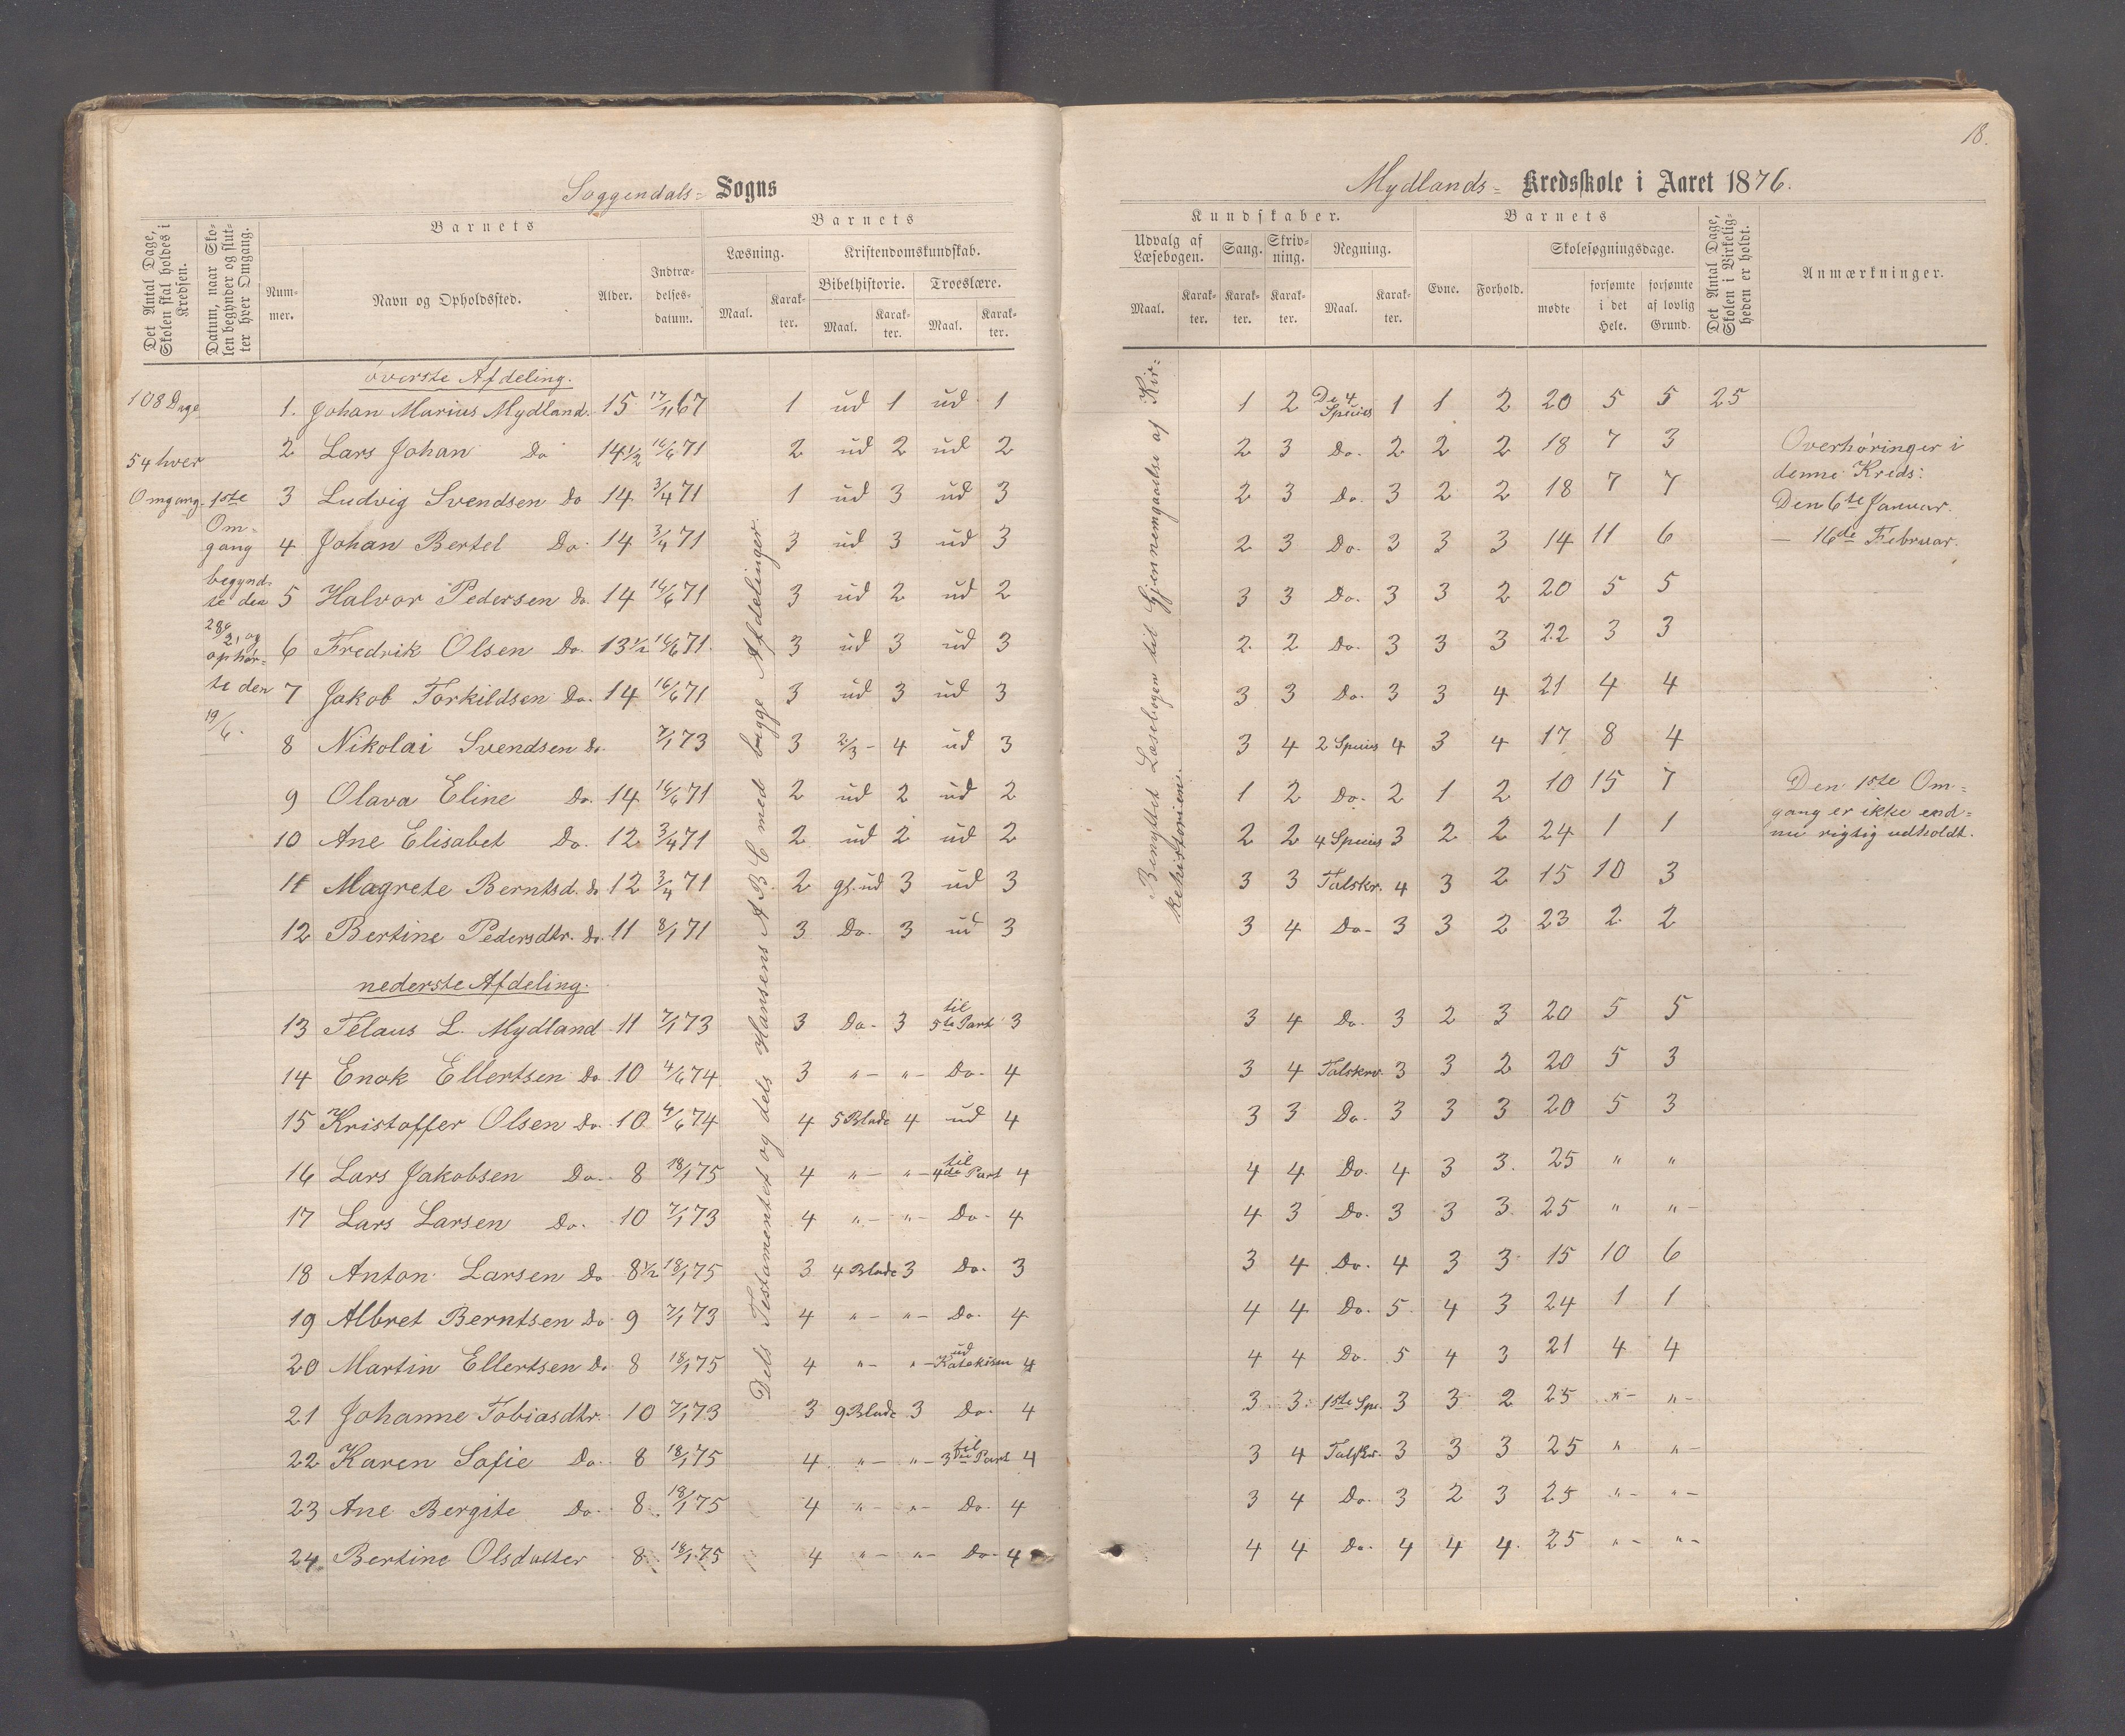 18.
Soggendals= Sogns
Mydlands= Kredsskole i Aaret 1876.
Det Antal Dage, Skolen skal holdes i Kredsen.
Datum, naar Skolen begynder og slutter hver Omgang.
Barnets
Nummer.
Navn og Opholdssted.
Alder.
Indtrædelsesdatum.
Barnets
Læsning.
Maal.
Karakter.
Kristendomskundskab.
Bibelhistorie.
Maal.
Karakter.
Troeslære.
Maal.
Karakter.
Kundskaber.
Udvalg af Læsebogen.
Maal.
Karakter.
Sang.
Karakter.
Skrivning.
Karakter.
Regning.
Maal.
Karakter.
Barnets
Evne.
Forhold.
Skolesøgningsdage.
mødte
forsømte i det Hele.
forsømte af lovlig Grund.
Det Antal Dage, Skolen i Virkeligheden er holdt.
Anmærkninger.
108 Dage
54 hver
Omgang.
1ste
Om-
gang
begynd-
te den
28/2, og
ophør-
te den
19/6.
Dels Testamentet og dels Hansens ABC med begge Afdelinger.
Benyttet Læsebogen til Gjennemgaaelse af Kir-
kehistorien.
øverste Afdeling.
1. Johan Marius Mydland. 15 17/11 67 1 ud 1 ud 1 1 2 De 4 Spécies 1 1 2 20 5 5 25
2 Lars Johan Do 14 1/2 16/6 71 2 ud 2 ud 2 2 3 Do. 2 2 2 18 7 3
3 Ludvig Svendsen Do 14 3/4 71 1 ud 3 ud 3 2 3 Do. 3 2 2 18 7 7
4 Johan Bertel Do 14 3/4 71 3 ud 3 ud 3 2 3 Do. 3 3 3 14 11 6
5 Halvor Pedersen Do. 14 16/6 71 3 ud 2 ud 2 3 3 Do. 3 3 2 20 5 5
6 Fredrik Olsen Do. 13 1/2 16/6 71. 3 ud 3 ud 3 2 2 Do. 3 3 3 22 3 3
7 Jakob Torkildsen Do. 14 16/6 71 3 ud 3 ud 3 3 3 Do. 3 3 4 21 4 4
8 Nikolai Svendsen Do. 7/1 73 3 2/3 - 4 ud 3 3 4 2 Species 4 3 4 17 8 4
9 Olava Eline Do. 14 16/6 71 2 ud 2 ud 2 1 2 Do. 2 1 2 10 15 7
10 Ane Elisabet Do. 12 3/4 71 2 ud 2 ud 2 2 2 4 Species 3 2 2 24 1 1
11 Magrete Berntsd. Do 12 3/4 71 2 gl. ud 3 ud 3 3 3 Talskr. 4 3 2 15 10 3
12 Bertine Pedersdtr. Do. 11 8/1 71 3 Do. 3 ud 3 3 4 Do- 3 3 2 23 2 2
Overhøringer i
denne Kreds:
Den 6te Januar.
— 16de Februar.
Den 1ste Om=
gang er ikke end=
nu rigtig udholdt.
nederste Afdeling.
13 Telaus L. Mydland 11 7/1 73 3 Do. 3 til 5te Part 3 3 4 Do. 3 2 3 20 5 5
14 Enok Ellertsen Do 10 4/6 74 3 "- "- Do. 4 3 4 Talskrv. 3 3 2 20 5 3
15 Kristoffer Olsen Do. 10 4/6 74 4 5 Blade 4 ud 4 3 3 Do. 3 3 3 20 5 3
16 Lars Jakobsen Do. 8 18/1 75 4 "- "- til 4de Part 4 4 4 Do. 4 3 3. 25 " "
17 Lars Larsen Do. 10 7/1 73 4 "- "- Do- 4 4 3 Do. 3 3 3 25 " "-
18 Anton Larsen Do 8 1/2 18/1 75 3 4 Blade 3 Do. 3 3 4 Do. 4 3 3 15 10 6
19 Albret Berntsen Do 9 7/1 73 4 "- "- Do. 4 4 4 Do. 5 4 3 24 1 1
20 Martin Ellertsen Do 8 18/1 75 4 "- "- ud Katekism 4 4 4 Do. 5 4 3 21 4 4
21 Johanne Tobiasdtr. 10 7/1 73 3 9 Blade 3 Do. 4 3 3 1ste Spe. 3 3 2 25 "- "-
22 Karen Sofie Do. 8 18/1 75 4 "- "- til 3die Part 4 3 4 Talskr. 3 3 3 25 " "-
23 Ane Bergite Do. 8 18/1 75 4 "- "- Do. 4 3 4 Do. 3 2 3 25 "- "-
24 Bertine Olsdatter 8 18/1 75 4 "- "- Do. 4 4 4 Do. 4 4 4 25 "- "-